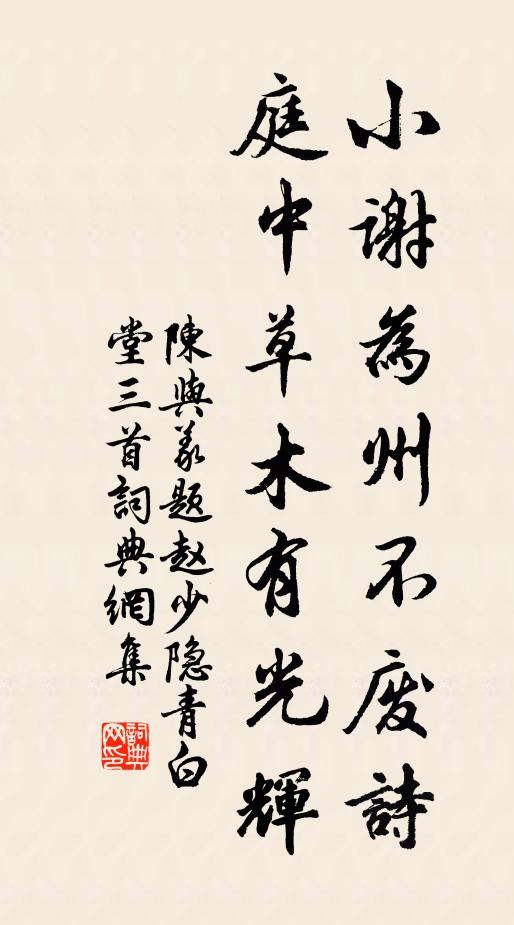 小謝為州不废詩
庭中草木有光輝
陳與義题赵少隐青白
堂三首詞典網集
詞典
网印